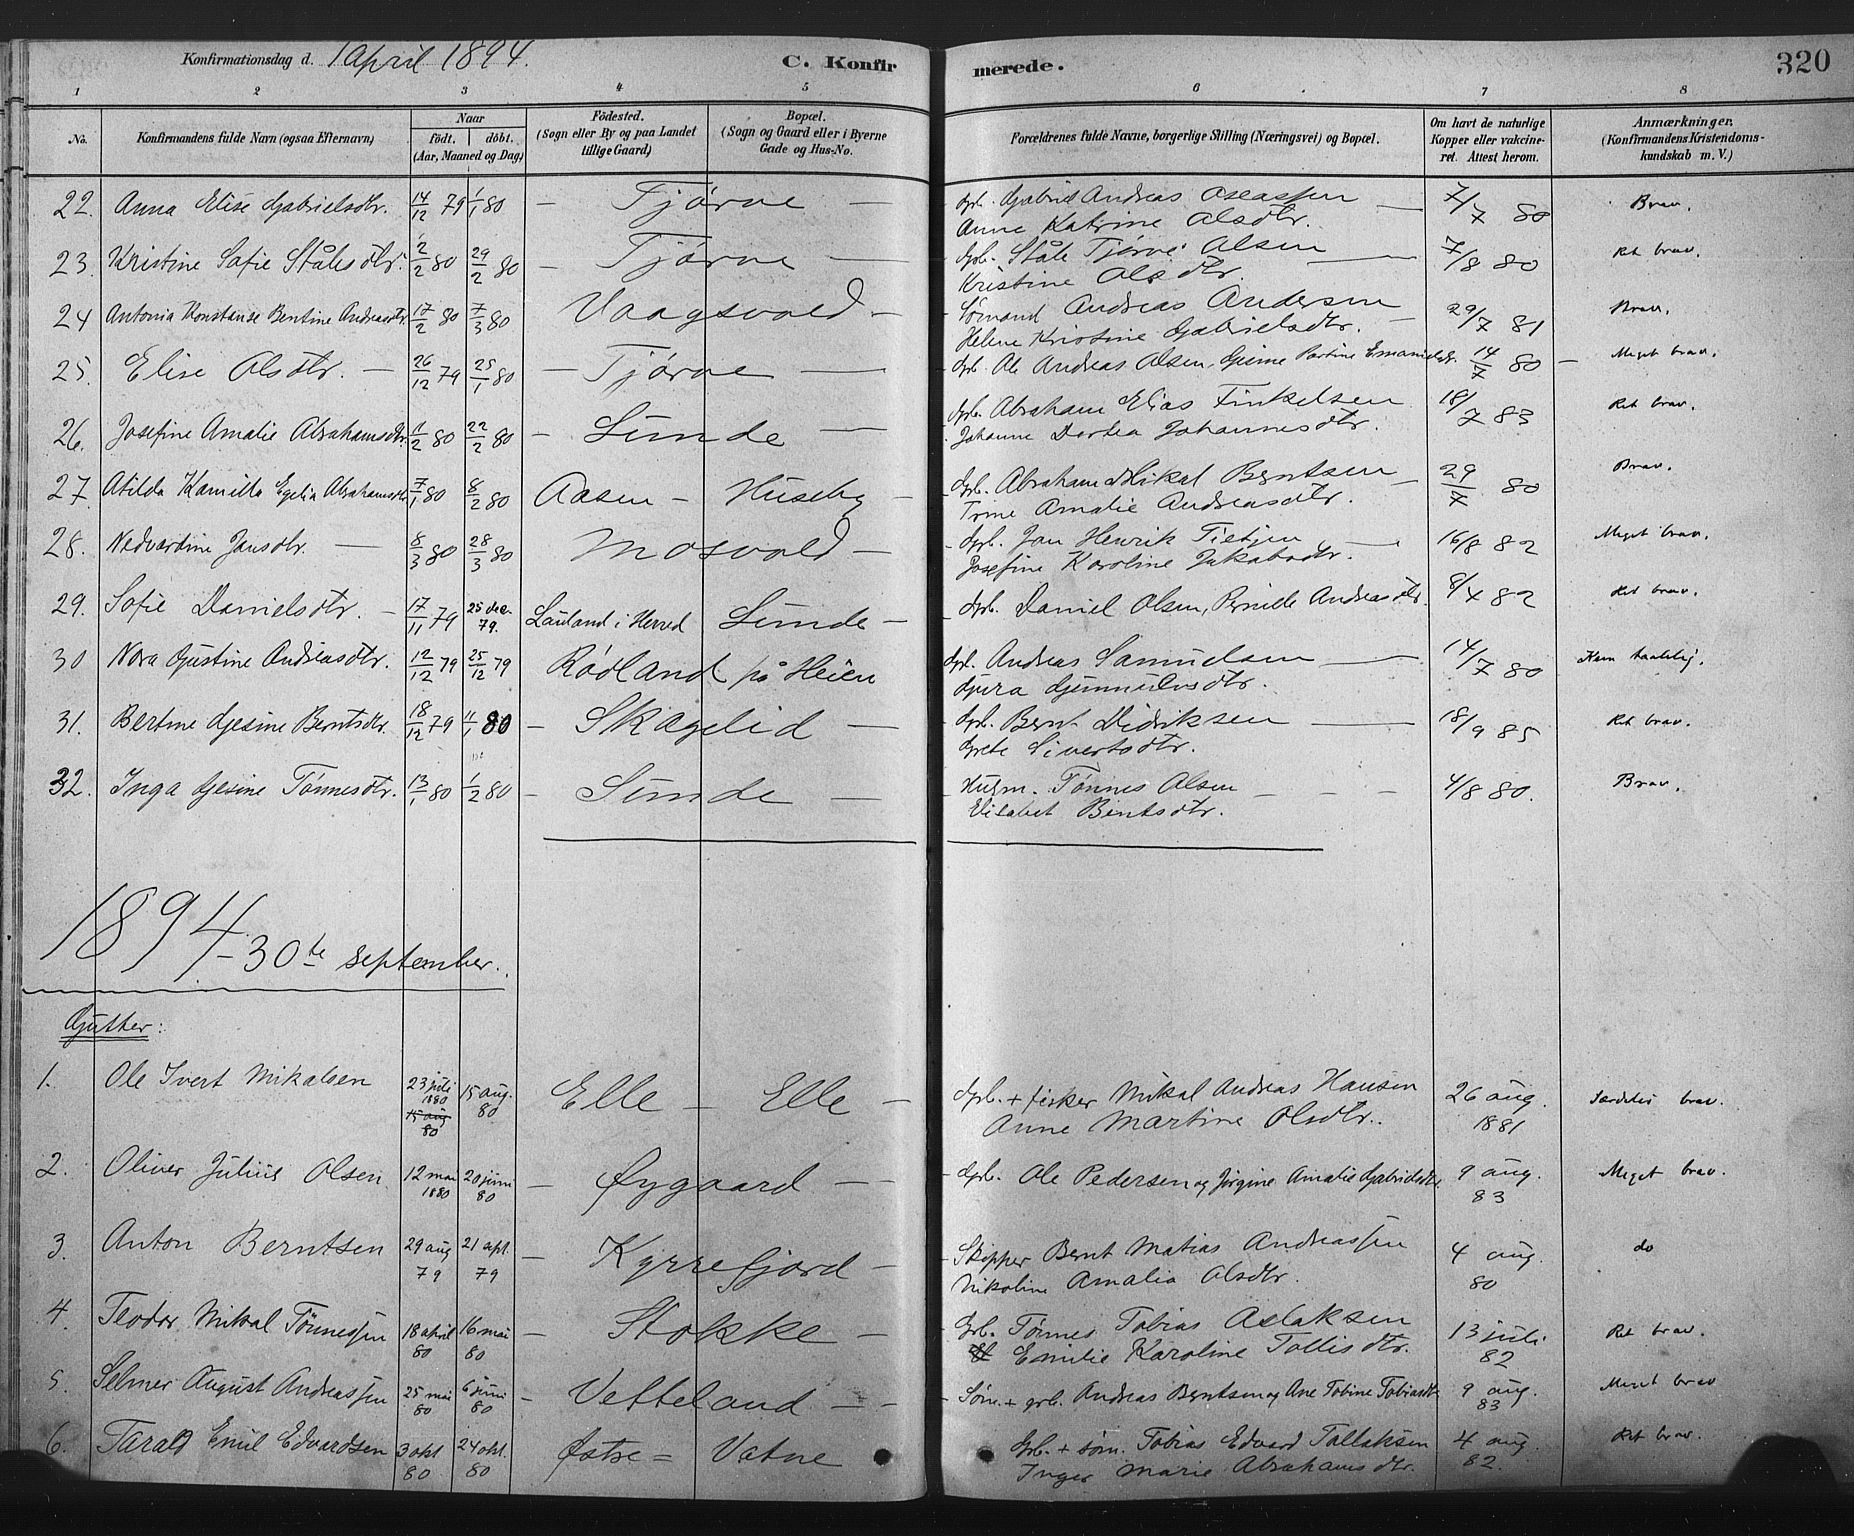 Konfirmationsdag d. 1 April 1894. C. Konfirmerede. 320
1 2 3 4 5 6 7 8
No. Konfirmandens fulde Navn (ogsaa Efternavn) Naar født. døbt. (Aar, Maaned og Dag) Fødested. (Sogn eller By og paa Landet tillige Gaard) Bopæl. (Sogn og Gaard eller i Byerne Gade og Hus-No. Forældrenes fulde Navne, borgerlige Stilling (Næringsvei) og Bopæl. Om havt de naturlige Kopper eller vakcineret. Attest herom. Anmærkninger. (Konfirmandens Kristendomskundskab m. V.)
22. Anna Elise Gabrielsdtr. 14/12 79 1/1 80 — Tjørve — Grb. Gabriel Andreas Oseassen — 7/7 80 Brav.
Anne Katrine Olsdtr.
23. Kristine Sofie Stålesdtr. 2/2 80 29/2 80 — Tjørve — Grb. Ståle Tjørve Olsen — 7/8 80 Ret brav.
Kristine Olsdtr.
24 Antonia Konstanse Bentine Andreasdtr. 17/2 80 7/3 80 Vaagsvold — Sømand Andreas Andersen 29/7 81 Brav.
Helene Kristine Gabrielsdtr. —
25. Elise Olsdtr. — 26/12 79 25/1 80 — Tjørve — Grb. Ole Andreas Olsen, Gusine Partine Emanuelsdtr. 14/7 80 — Meget brav.
26. Josefine Amalie Abrahamsdtr. 11/2 80 22/2 80 — Sunde — Grb. Abraham Elias Finkelsen 18/7 83 Ret brav.
Johanne Dortea Johannesdtr.
27. Atilda Kamilla Egelia Abrahamsdtr 7/1 80 8/2 80 Aasen — Huseby — Grb. Abraham Mikal Berntsen — 29/7 80 Brav.
Trine Amalie Andreasdtr.
28. Nedvardine Jansdtr. — 8/3 80 28/3 80 Mosvold — Grb. Jan Henrik Tietjen — 16/8 82 Meget brav.
Josefine Karoline Jakobsdtr.
29. Sofie Danielsdtr. — 17/11 79 25 dec. 79. Lauland i Herred Sunde — Grb. Daniel Olsen, Pernille Andreasdtr. 8/7 82 Ret brav.
30 Nora Gustine Andreasdtr. 12/12 79 25/12 79 Rødland på Heien Grb. Andreas Samuelsen — 14/7 80 Kun taalelig.
Gura Gunnulvsdtr.
31. Bertine Gesine Berntsdtr. 18/12 79 11/1 80 — Skagelid — Grb. Bernt Didriksen — 18/9 85 Ret brav.
Grete Sivertsdtr.
32. Inga Gesine Tønnesdtr. 13/1 80 1/2 80 — Sunde — Husm. Tønnes Olsen — — — 4/8 80. Brav.
Elisabet Berntsdtr.
1894 – 30te september.
Gutter:
1. Ole Ivert Mikalsen 23 juli 1880 15 aug 80 15 aug. 80 Elle — Elle — Grb. + fisker Mikal Andreas Hansen 26 aug. 1881 Særdeles brav.
Anne Martine Olsdtr.
2. Oliver Julius Olsen 12 mai 1880 20 juni 80 — Øygaard — Grb. Ole Pedersen og Jørgine Amalie Gabrielsdtr. 9 aug. 83 Meget brav.
3. Anton Berntsen 29 aug 79 21 spt. 79 — Kyrrefjord — Skipper Bernt Matias Andreassen 4 aug. 80 do
Nikoline Amalia Olsdtr.
4. Teodor Mikal Tönnessen 18 april 80 16 mai 80 — Stokke — Grb. Tønnes Tobias Aslaksen 13 juli 82 Ret brav.
Emilie Karoline Tollisdtr.
5. Selmer August Andreassen 25 mai 80 6 juni 80 — Vetteland — Søm. + grb. Andreas Berntsen og Ane Tobine Tobiasdtr 9 aug. 83 Meget brav
6. Tarald Emil Edvardsen 3 okt 80 24 okt. 80 Østre = Vatne Grb. + søm. Tobias Edvard Tollaksen 4 aug. 82. Ret brav.
Inger Marie Abrahamsdtr.